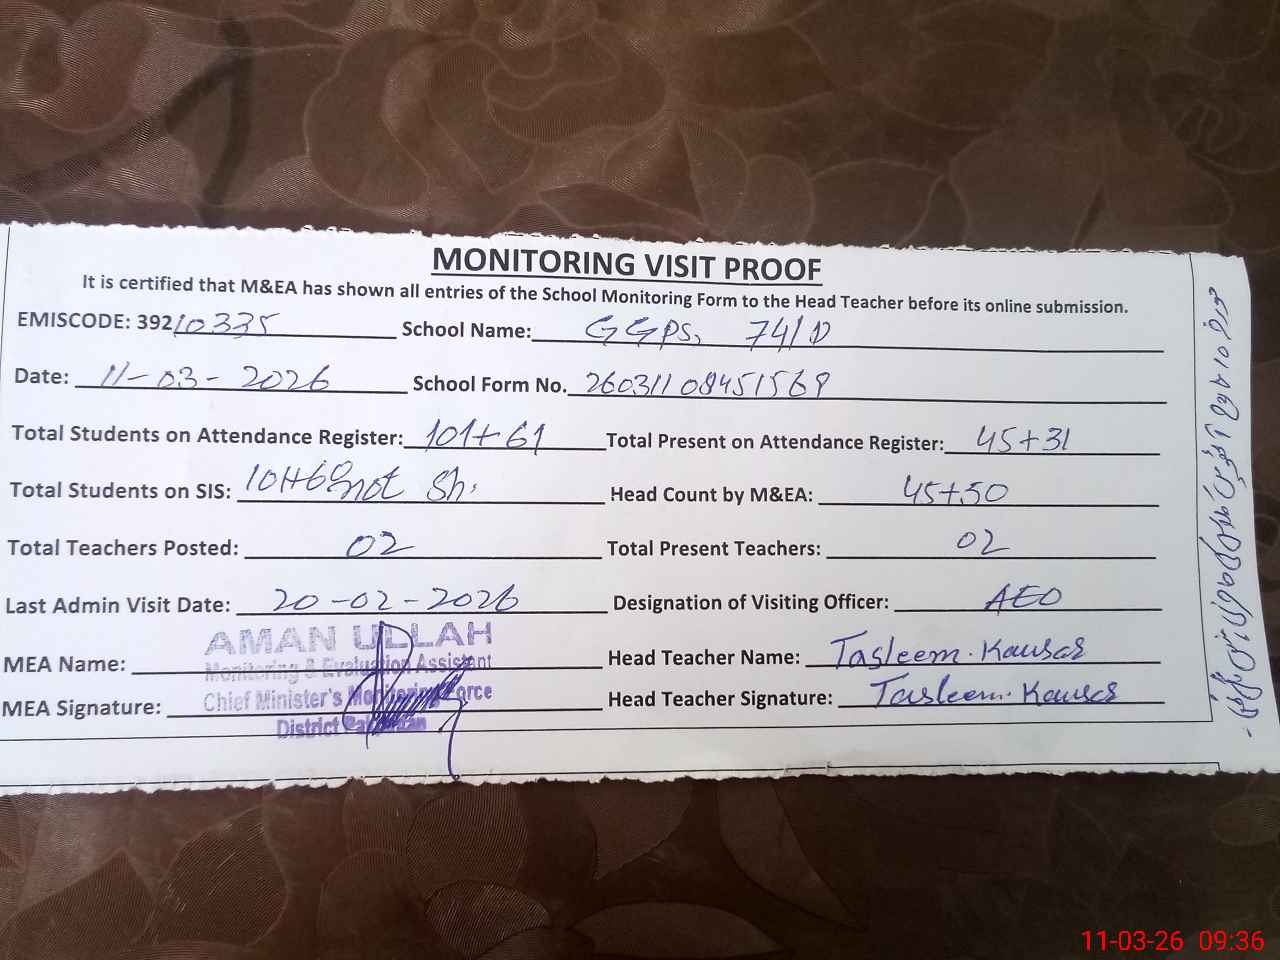 MONITORING VISIT PROOF
It is certified that M&EA has shown all entries of the School Monitoring Form to the Head Teacher before its online submission.
EMISCODE: 39210335 School Name: GGPS, 74/D
Date: 11-03-2026 School Form No. 26031108451568
Total Students on Attendance Register: 101+61 Total Present on Attendance Register: 45+31
Total Students on SIS: 101+60 not Sh: Head Count by M&EA: 45+50
Total Teachers Posted: 02 Total Present Teachers: 02
Last Admin Visit Date: 20-02-2026 Designation of Visiting Officer: AEO
AMAN ULLAH
MEA Name: Monitoring & Evaluation Assistant Head Teacher Name: Tasleem. Kausar
Chief Minister's Monitoring Force
MEA Signature: Head Teacher Signature: Tasleem. Kausar
District Pakpattan
11-03-26 09:36